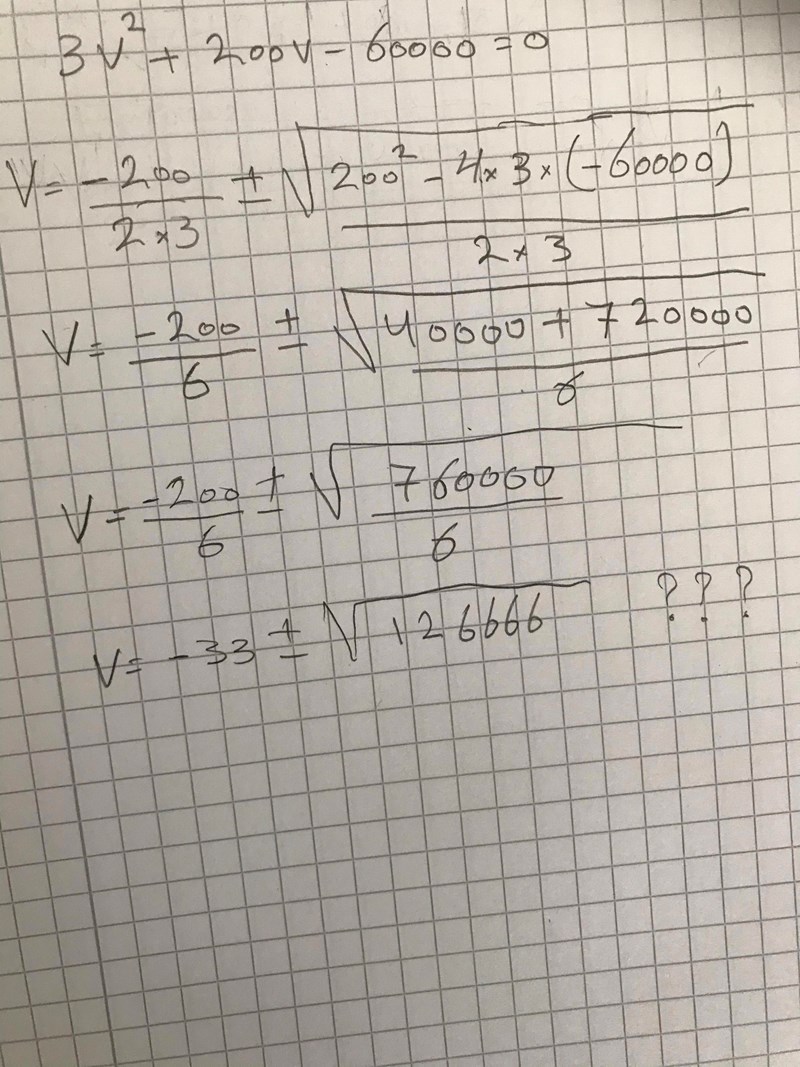 3v² + 200v - 60000 = 0
V = -200/(2×3) ± √((200² - 4×3×(-60000))/(2×3))
V = -200/6 ± √((40000 + 720000)/6)
V = -200/6 ± √(760000/6)
V = -33 ± √126666 ???